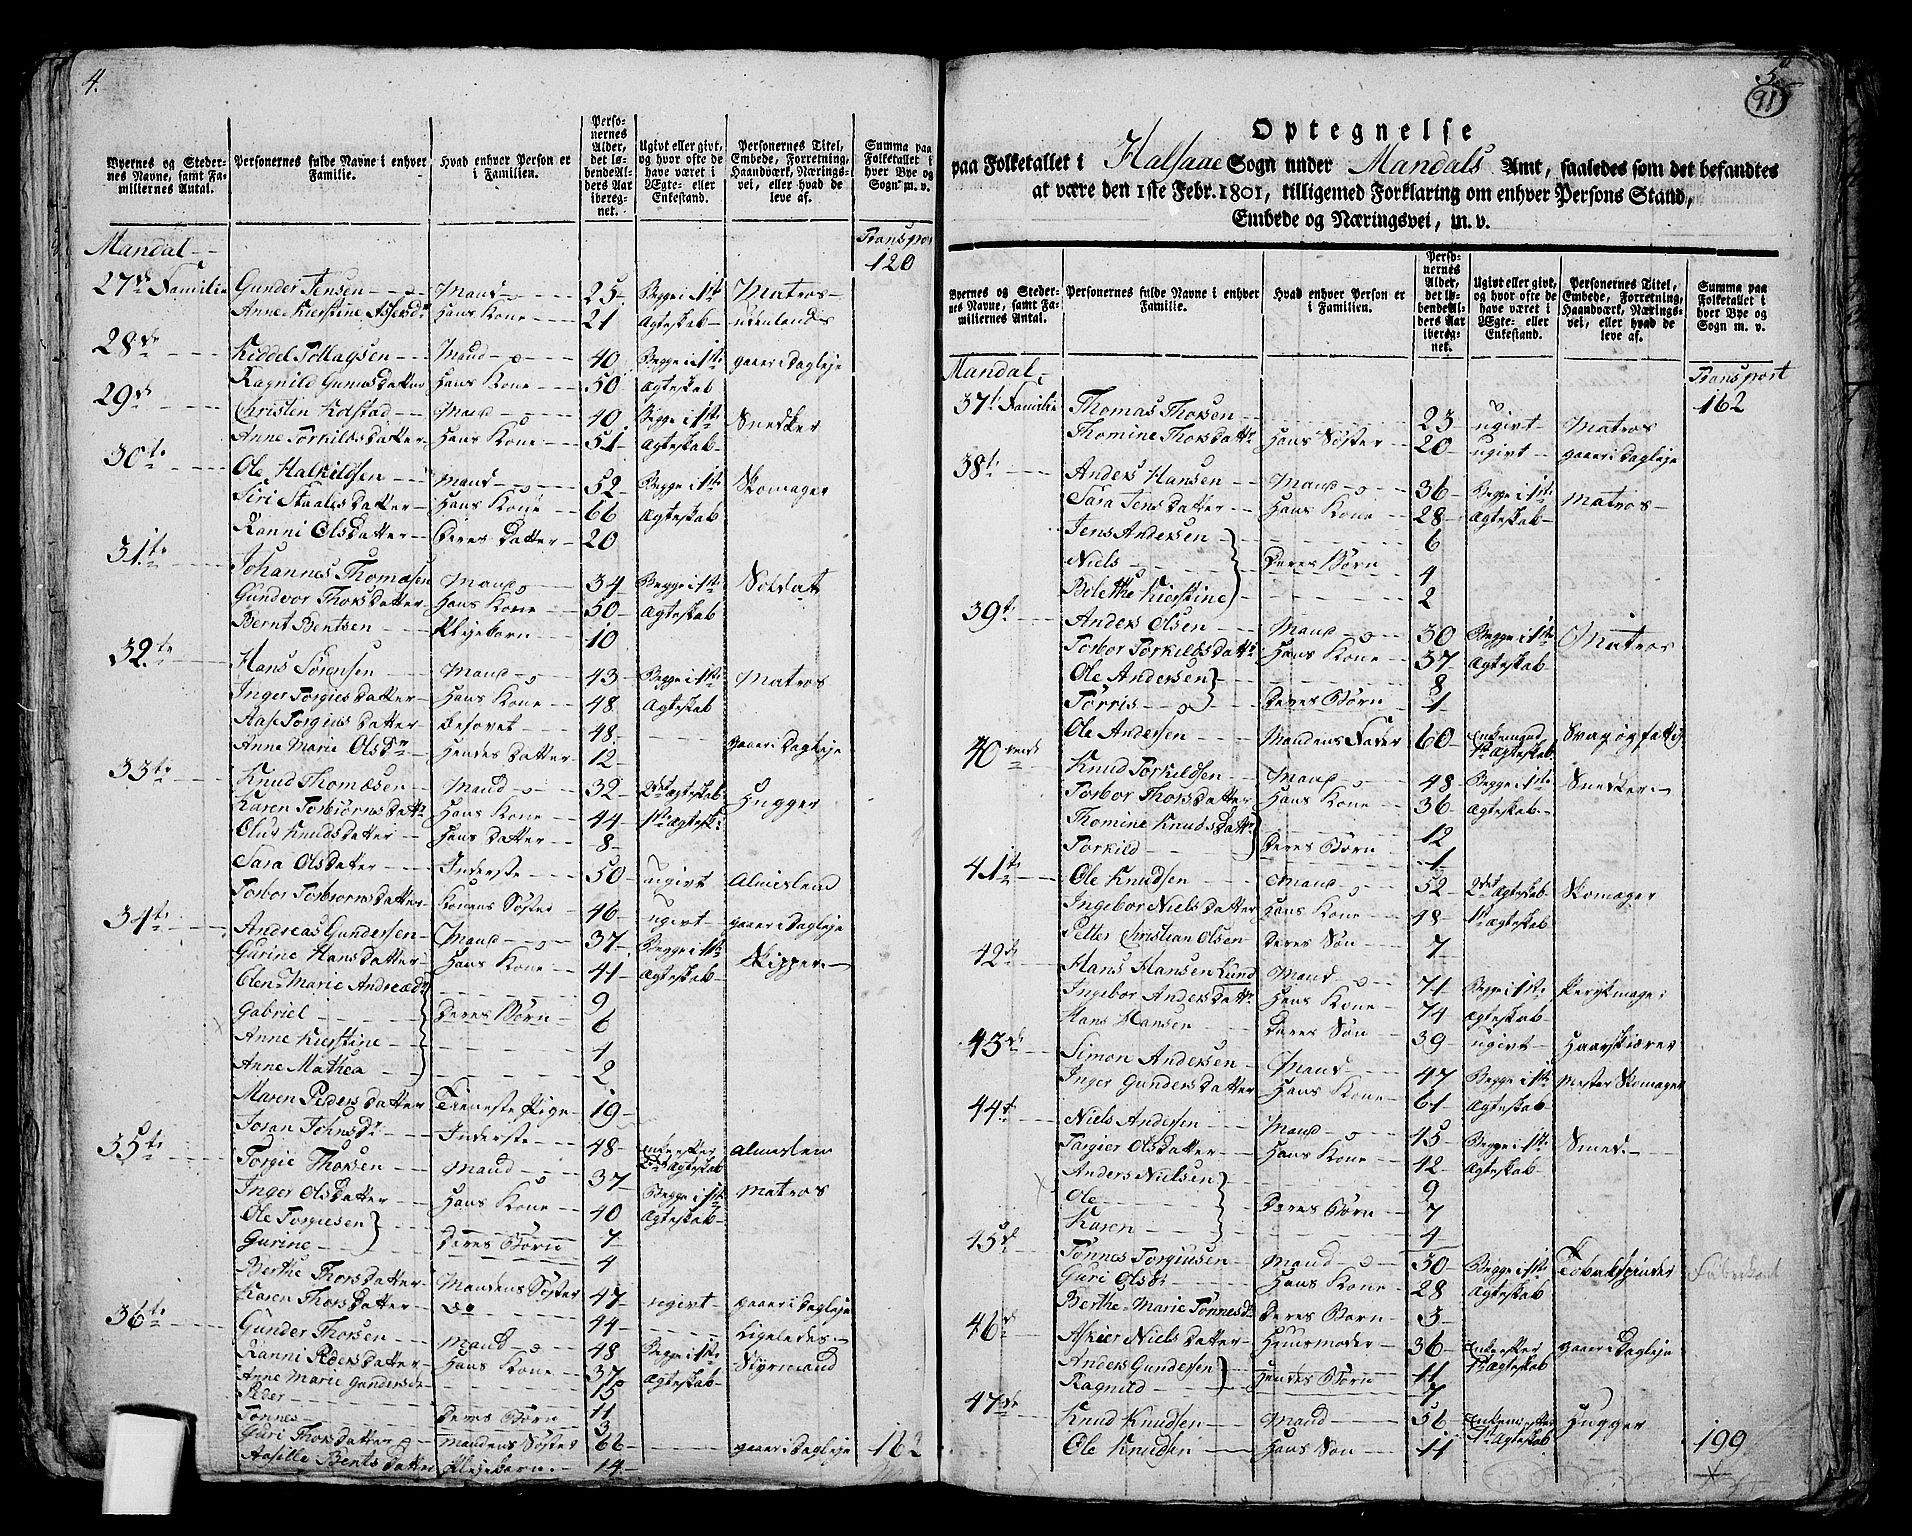 4.
Byernes og Steder-
nes Navne, samt Fa-
miliernes Antal.
Personernes fulde Navne i enhver
Familie.
Hvad enhver Person er
i Familien.
Perso-
nernes
Alder,
det lø-
bende Al-
ders Aar
ibereg-
net.
Ugivt eller givt,
og hvor ofte de
have været i
Ægte- eller
Enkestand.
Personernes Titel,
Embede, Forretning,
Haandværk, Nærings-
vei, eller hvad de
leve af.
Summa paa
Folketallet i
hver Bye og
Sogn m. v.
Mandal Transport
120
27de Familie Gunder Jensen Mand 25 Begge i 1ste Matros
Anne Kierstine Hans Kone 21 Ægteskab udenlands
28de Keddel Tollagsen Mand 40 Begge i 1ste gaaer i Dagleje
Ragnild Gunnisdatter Hans Kone 50 Ægteskab
29de Christen Kolstad Mand 40 Begge i 1ste Snedker
Anne Torkildsdatter Hans Kone 51 Ægteskab
30te Ole Halkildsen Mand 52 Begge i 1ste Skomager
Siri Staalesdatter Hans Kone 66 Ægteskab
Ranni Olsdatter Deres Datter 20
31te Johannes Thomæsen Mand 34 Begge i 1ste Soldat
Gundvor Thorsdatter Hans Kone 50 Ægteskab
Bernt Bentsen Plejebarn 10
32te Hans Sørensen Mand 43 Begge i 1ste Matros
Inger Torgiusdatter Hans Kone 48 Ægteskab
Aase Torgiusdatter besovet 48
Anne Marie Olsdr Hendes Datter 12 gaaer i Dagleje
33te Knud Thomæsen Mand 32 2det Ægteskab Hugger
Karen Torbiørnsdattr Hans Kone 44 1ste Ægtesk:
Olus Knudsdatter Hans Datter 8
Sara Olsdatter Inderste 50 ugivt Almislem
Torbor Torbiørnsdatter Konens Søster 46 ugivt gaaer i Dagleje
34te Andreas Gundersen Mand 37 Begge i 1ste Skipper
Gurine Hansdatter Hans Kone 41 Ægteskab
Olen-Marie Andreæd 9
Gabriel Deres Børn 6
Anne Kierstine 4
Anne Mathea 2
Maren Pedersdatter Tieneste Pige 19
Joran Johnsdr Inderste 48 Enke efter Almislem
1ste Ægteskab
35te Torgie Thorsen Mand 37 Begge i 1ste Matros
Inger Olsdatter Hans Kone 40 Ægteskab
Ole Torgiesen 7
Gurine Deres Børn 4
Berthe Thorsdatter Mandens Søster 47 ugivt gaaer i Dagleje
Karen Thorsdatter do 44 Ligeledes
36te Gunder Thorsen Mand 48 Begge i 1ste Styrmand
Ranni Pedersdatter Hans Kone 37 Ægteskab
Anne Marie Gundersdr 15
Peder 11
Tønnes Deres Børn 3
Guri Thorsdatter Mandens Søster 66 gaaer i Dagleje 162
Aasille Bentsdatter Plejebarn 14
5
91
Optegnelse
paa Folketallet i Halsaae Sogn under Mandals Amt, saaledes som det befandtes
at være den 1ste Febr. 1801, tilligemed Forklaring om enhver Persons Stand,
Embede og Næringsvei, m. v.
Byernes og Steder-
nes Navne, samt Fa-
miliernes Antal.
Personernes fulde Navne i enhver
Familie.
Hvad enhver Person er
i Familien.
Perso-
nernes
Alder,
det lø-
bende Al-
ders Aar
ibereg-
net.
Ugivt eller givt,
og hvor ofte de
have været i
Ægte- eller
Enkestand.
Personernes Titel,
Embede, Forretning,
Haandværk, Nærings-
vei, eller hvad de
leve af.
Summa paa
Folketallet i
hver Bye og
Sogn m. v.
Mandal Transport
162
37t Familie Thomas Thorsen 23 ugivt Matros
Thomine Thorsdattr Hans Søster 20 ugivt gaaer i Dagleje
38te Anders Hansen Mand 36 Begge i 1ste Matros
Sara Jensdatter Hans Kone 28 Ægteskab
Jens Andersen 6
Niels Deres Børn 4
Belethe Kierstine 2
39te Anders Olsen Mand 30 Begge i 1ste Matros
Torbor Torkildsdattr Hans Kone 37 Ægteskab
Ole Andersen 8
Tørris Deres Børn 1
Ole Andersen Mandens Fader 60 Enkemand Svag og fattig
1ste Ægteskab
40 Knud Torkildsen Mand 48 Begge i 1ste Snedker
Torbor Thorsdatter Hans Kone 36 Ægteskab
Thomine Knudsdattr 12
Torkild Deres Børn 1
41te Ole Knudsen Mand 52 2det Ægteskab Skomager
Ingebor Nielsdatter Hans Kone 48 1ste Ægteskab
Petter Christian Olsen Deres Søn 7
42de Hans Hansen Lund Mand 71 Begge i 1ste
Ingebor Andersdattr Hans Kone 74 Ægteskab
Hans Hansen Deres Søn 39 ugivt Haarskiærer
43de Simon Andersen Mand 47 Begge i 1ste Mester Skomager
Inger Gundersdatter Hans Kone 61 Ægteskab
44t Niels Andersen Mand 45 Begge i 1ste Smed
Targier Olsdatter Hans Kone 42 Ægteskab
Anders Nielsen 9
Ole Deres Børn 7
Karen 4
45de Tønnes Torgiusen Mand 30 Begge i 1ste Tobakspinder
Guri Olsdr Hans Kone 28 Ægteskab
Berthe-Marie Tønnesdr Deres Barn 3
46de Askier Nielsdatter Huusmoder 36 Enke efter gaaer i Dagleje
1ste Ægteskab
Anders Gundersen 11
Ragnild Hendes Børn 7
47de Knud Knudsen Mand 56 Enkem: efter Hugger
1ste Ægteskab
Ole Knudsen Hans Søn 11 199